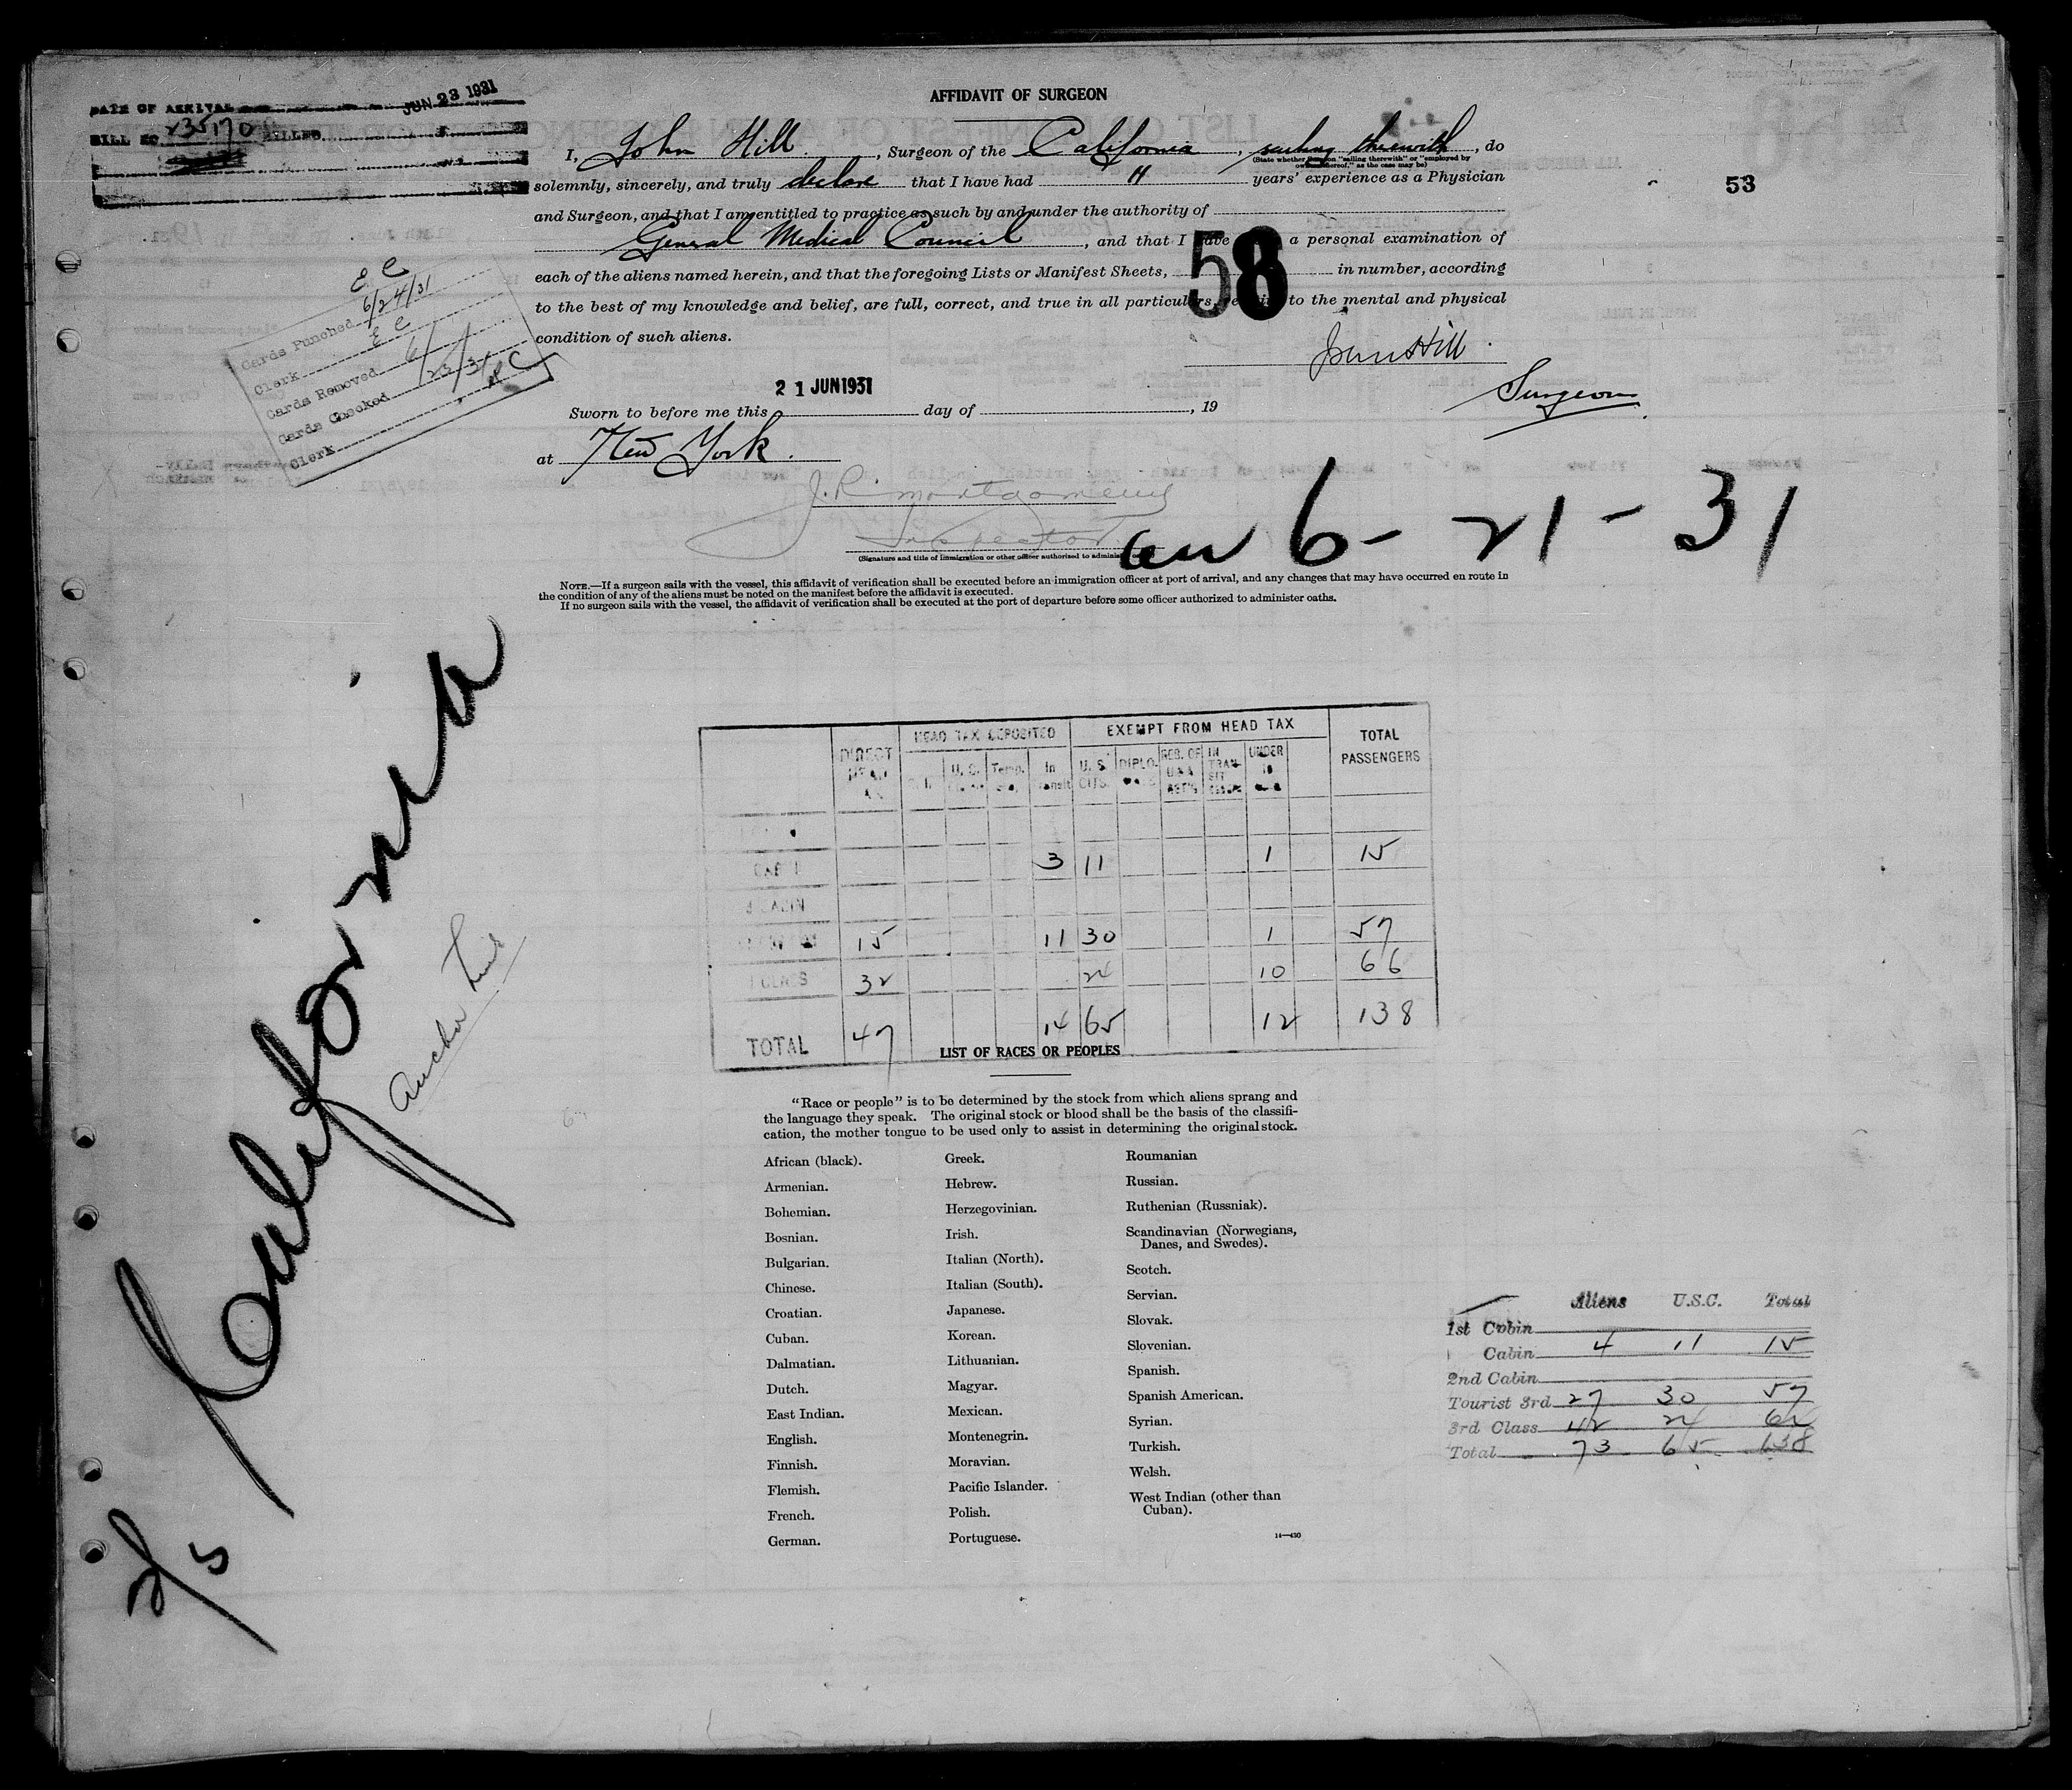 DATE OF ARRIVAL JUN 23 1931
BILL NO 235170 BILLED
AFFIDAVIT OF SURGEON
I, John Hill, Surgeon of the California, sailing therewith, do
(State whether Surgeon "sailing therewith" or "employed by
owners thereof," as the case may be)
solemnly, sincerely, and truly declare that I have had 11 years' experience as a Physician
53
and Surgeon, and that I am entitled to practice as such by and under the authority of
General Medical Council, and that I have a personal examination of
58
each of the aliens named herein, and that the foregoing Lists or Manifest Sheets, in number, according
to the best of my knowledge and belief, are full, correct, and true in all particulars, to the mental and physical
condition of such aliens.
John Hill.
Surgeon.
E C
Cards Punched 6/24/31
Clerk E C
Cards Removed 6/
Cards Checked 23/31
Clerk
21 JUN 1931
Sworn to before me this day of , 19
at New York.
J. R. Montgomery
Inspector
(Signature and title of immigration or other officer authorized to
6-21-31
NOTE.—If a surgeon sails with the vessel, this affidavit of verification shall be executed before an immigration officer at port of arrival, and any changes that may have occurred en route in
the condition of any of the aliens must be noted on the manifest before the affidavit is executed.
If no surgeon sails with the vessel, the affidavit of verification shall be executed at the port of departure before some officer authorized to administer oaths.
California
Anchor Line
2/5
HEAD TAX DEPOSITED EXEMPT FROM HEAD TAX TOTAL PASSENGERS
DIRECT HEAD TAX U.S. Temp. In Transit U.S. CITS. DIPLO- RES. OF U.S.A. IN TRAN- SIT UNDER 16
CABIN 3 11 1 15
CABIN
15 11 30 1 57
CLASS 32 24 10 66
TOTAL 47 14 65 12 138
LIST OF RACES OR PEOPLES
"Race or people" is to be determined by the stock from which aliens sprang and
the language they speak. The original stock or blood shall be the basis of the classifi-
cation, the mother tongue to be used only to assist in determining the original stock.
African (black).
Armenian.
Bohemian.
Bosnian.
Bulgarian.
Chinese.
Croatian.
Cuban.
Dalmatian.
Dutch.
East Indian.
English.
Finnish.
Flemish.
French.
German.
Greek.
Hebrew.
Herzegovinian.
Irish.
Italian (North).
Italian (South).
Japanese.
Korean.
Lithuanian.
Magyar.
Mexican.
Montenegrin.
Moravian.
Pacific Islander.
Polish.
Portuguese.
Roumanian
Russian.
Ruthenian (Russniak).
Scandinavian (Norwegians,
Danes, and Swedes).
Scotch.
Servian.
Slovak.
Slovenian.
Spanish.
Spanish American.
Syrian.
Turkish.
Welsh.
West Indian (other than
Cuban).
14—430
Aliens U.S.C. Total
1st Cabin
Cabin 4 11 15
2nd Cabin
Tourist 3rd 27 30 57
3rd Class 42 24 66
Total 73 65 138